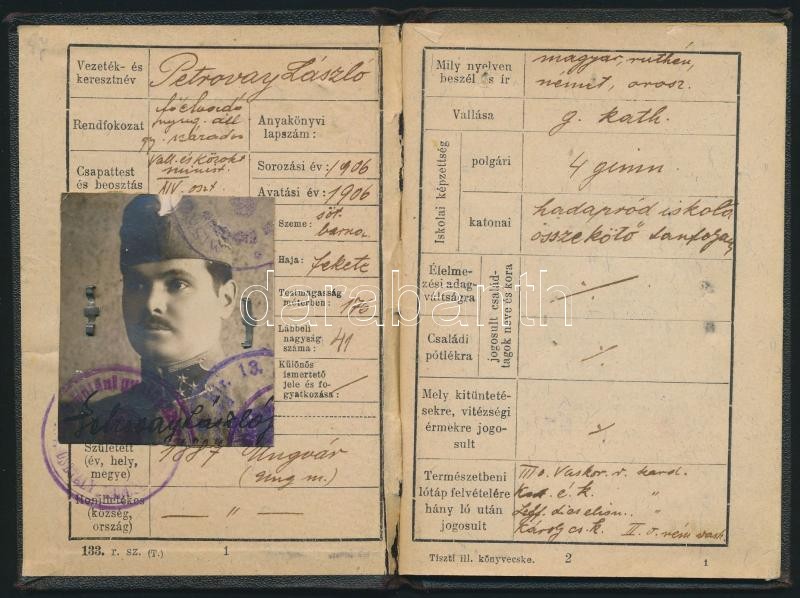 Vezeték- és
keresztnév
Petrovay László
Rendfokozat
főelőadó
nyug. áll.
százados
Anyakönyvi
lapszám:
Csapattest
és beosztás
Vall. és közokt.
minist.
XIV. oszt.
Sorozási év: 1906
Avatási év: 1906
Szeme: söt.
barna
Haja: fekete
Testmagasság
méterben: 176
Lábbeli
nagyság
száma: 41
Különös
ismertető
jele és fo-
gyatkozása:
Petrovay László
Született
(év, hely,
megye)
1887 Ungvár
(Ung m.)
Honilletékes
(község,
ország)
— " —
133. r. sz. (T.)
1
Mily nyelven
beszél és ír
magyar, ruthén,
német, orosz.
Vallása
g. kath.
Iskolai képzettség
polgári
4 gimn.
katonai
hadapród iskola
összekötő tanfolyam
Élelme-
zési adag-
váltságra
Családi
pótlékra
jogosult család-
tagok neve és kora
Mely kitünteté-
sekre, vitézségi
érmekre jogo-
sult
Természetbeni
lótáp felvételére
hány ló után
jogosult
III o. Vaskor. r. kard.
K. é. k. "
"
Károly cs. k.
Tiszti ill. könyvecske.
2
1
darabanth